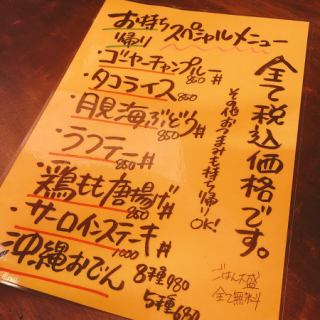 お持ち帰り スペシャルメニュー
・ゴーヤーチャンプルー 850 #
・タコライス 850
・月見海ぶどう丼 850
・ラフテー丼 850
・鶏もも唐揚げ丼 850
・サーロインステーキ丼 1000
沖縄おでん 8種980
5種680
全て税込価格です。
その他おつまみも持ち帰りOK!
ごはん大盛
全て無料